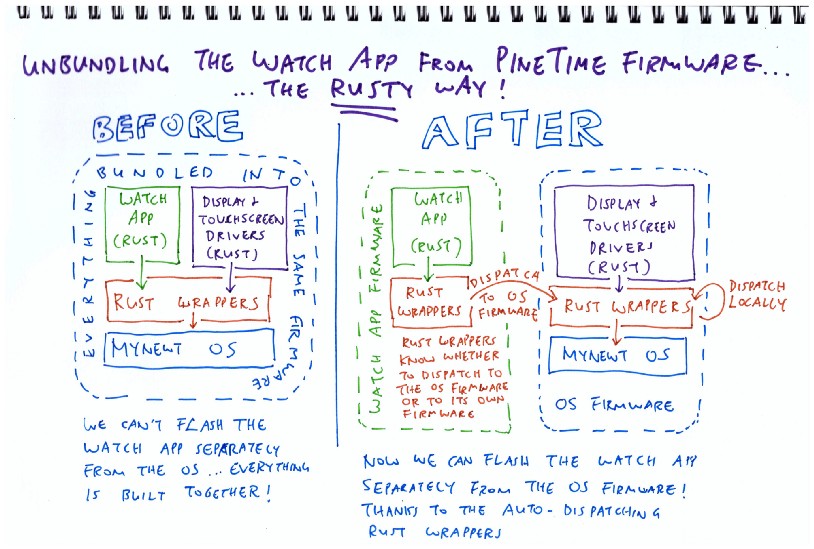 UNBUNDLING THE WATCH APP FROM PINETIME FIRMWARE...
... THE RUSTY WAY!
BEFORE
EVERYTHING BUNDLED INTO THE SAME FIRMWARE
WATCH
APP
(RUST)
DISPLAY &
TOUCHSCREEN
DRIVERS
(RUST)
RUST WRAPPERS
MYNEWT OS
WE CAN'T FLASH THE
WATCH APP SEPARATELY
FROM THE OS ... EVERYTHING
IS BUILT TOGETHER!
AFTER
WATCH APP FIRMWARE
WATCH
APP
(RUST)
RUST
WRAPPERS
DISPATCH
TO OS
FIRMWARE
RUST WRAPPERS
KNOW WHETHER
TO DISPATCH TO
THE OS FIRMWARE
OR TO ITS OWN
FIRMWARE
DISPLAY &
TOUCHSCREEN
DRIVERS
(RUST)
RUST WRAPPERS
DISPATCH
LOCALLY
MYNEWT OS
OS FIRMWARE
NOW WE CAN FLASH THE WATCH APP
SEPARATELY FROM THE OS FIRMWARE!
THANKS TO THE AUTO-DISPATCHING
RUST WRAPPERS